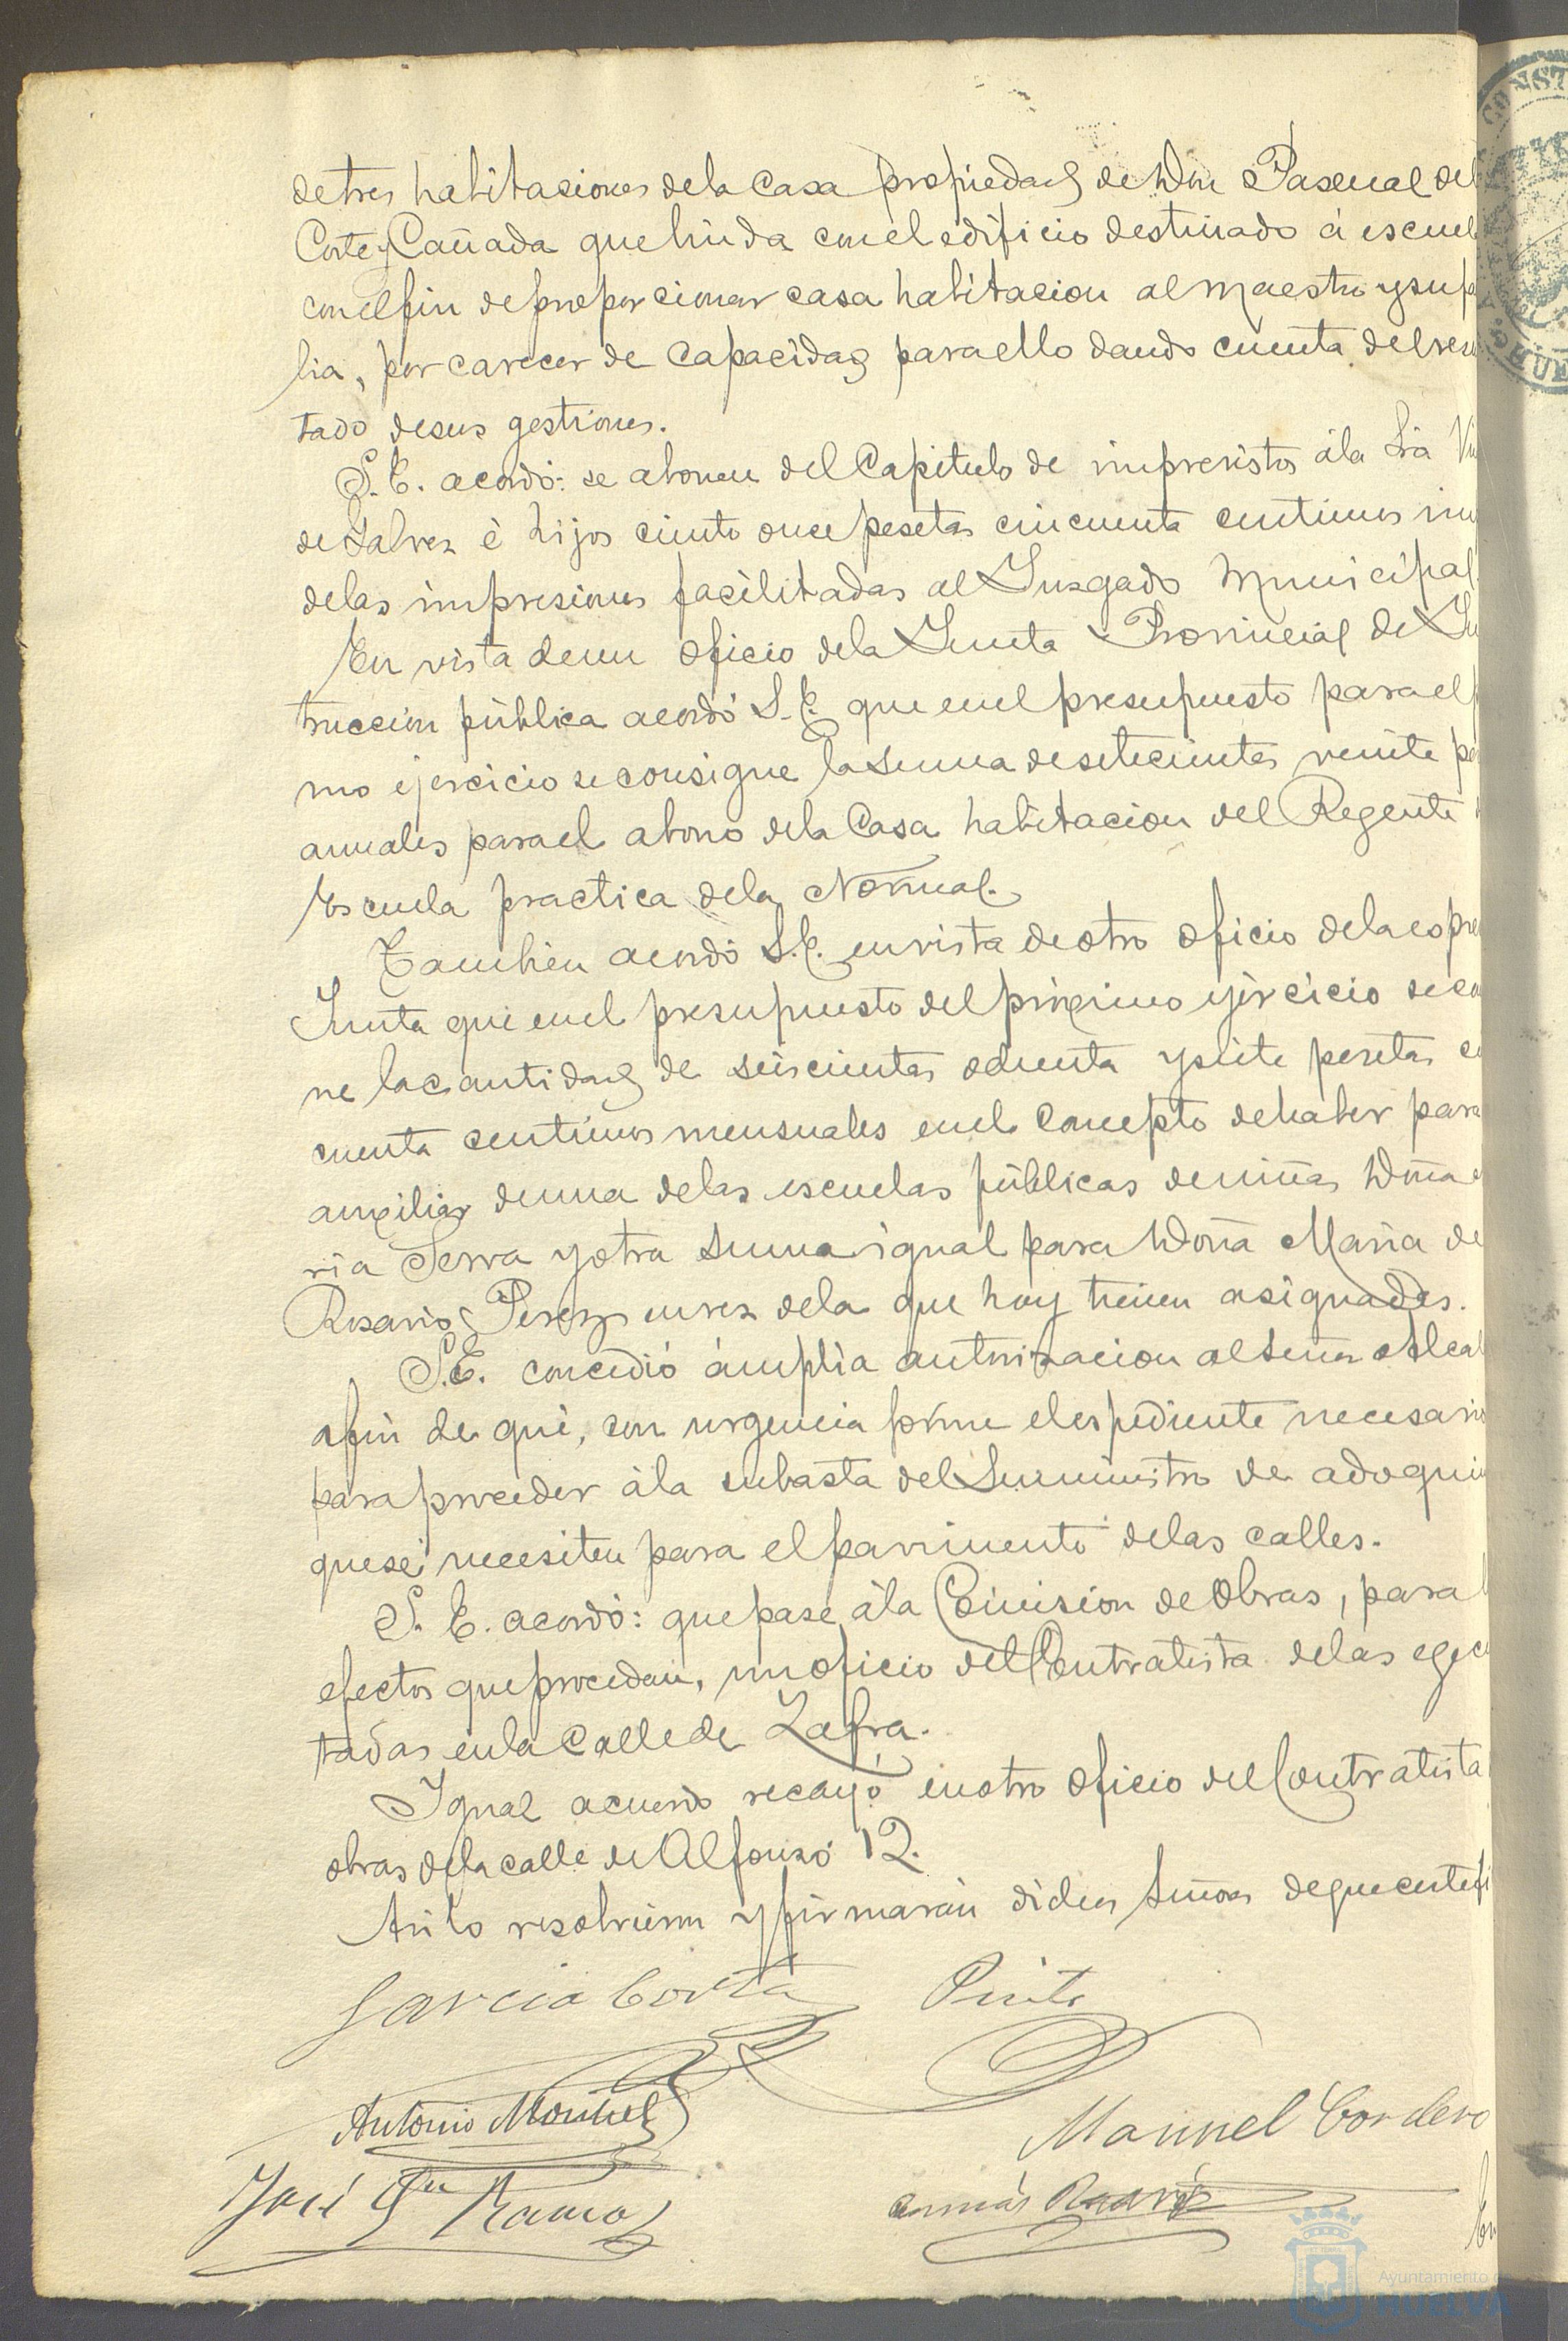 de tres habitaciones de la Casa propiedad de Don Pascual del
Corte y Cañada que linda con el edificio destinado á escuel
con el fin de proporcionar casa habitacion al maestro y su fa
lia, por carecer de capacidad para ello dando cuenta del resu
tado de sus gestiones.
S. E. acordó: se abonen del Capitulo de imprevistos á la Sra Viu
de Galvez é hijos ciento once pesetas cincuenta centimos im
de las impresiones facilitadas al Juzgado Municipal
En vista de un oficio de la Junta Provincial de In
truccion pública acordó S. E. que en el presupuesto para el p
mo ejercicio se consigne la suma de setecientas veinte pe
anuales para el abono de la Casa habitacion del Regente
Escuela practica de la Normal.
Tambien acordó S. E. en vista de otro oficio de la espre
Junta que en el presupuesto del proximo ejercicio se co
ne la cantidad de seiscientas ochenta y siete pesetas ci
cuenta centimos mensuales en el concepto de haber para
auxiliar de una de las escuelas públicas de niñas Doña
ria Serra y otra suma igual para Doña Maria de
Rosario Perez en vez de la que hoy tienen asignadas.
S. E. concedió ámplia autorizacion al Señor Alcal
afin de que, con urgencia forme el espediente necesario
para proceder á la subasta del Suministro de adoquin
que se necesiten para el pavimento de las calles.
S. E. acordó: que pase á la Comision de Obras, para l
efectos que procedan, un oficio del Contratista de las egecu
tadas en la Calle de Zafra.
Igual acuerdo recayó en otro oficio del Contratista
obras de la calle de Alfonso 12.
Asi lo resolvieron y firmarán dichos Señores de que certifi
Garcia Corta Pinto
Antonio Montiel
Manuel Cordero
José Ramos
Tomás
CONST
Ayuntamiento de
HUELVA